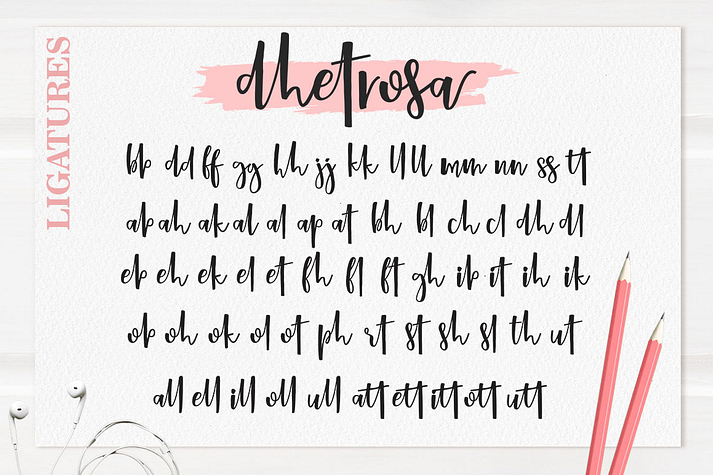 LIGATURES
dhetrosa
bb dd ff gg hh jj kk ll ll mm nn ss tt
ab ah ak al al ap at bh bl ch cl dh dl
eb eh ek el et fh fl ft gh ib it ih ik
ob oh ok ol ot ph rt st sh sl th ut
all ell ill oll ull att ett itt ott utt